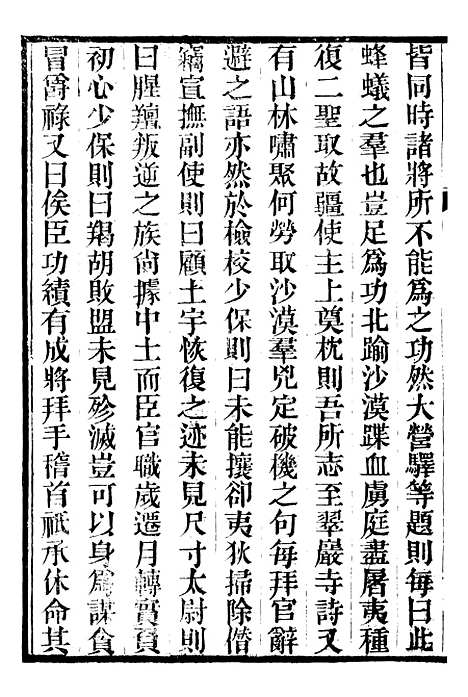 皆同時諸將所不能爲之功然大營驛等題則每曰此
蜂蟻之羣也豈足爲功北踰沙漠蹀血虜庭盡屠夷種
復二聖取故疆使主上奠枕則吾所志至翠巖寺詩又
有山林嘯聚何勞取沙漠羣兇定破機之句每拜官辭
避之語亦然於檢校少保則曰未能攘卻夷狄掃除僭
竊宣撫副使則曰顧土宇恢復之迹未見尺寸太尉則
曰腥羶叛逆之族尙據中土而臣官職歲遷月轉實負
初心少保則曰羯胡敗盟未見殄滅豈可以身爲謀貪
冒爵祿又曰俟臣功績有成將拜手稽首祗承休命其